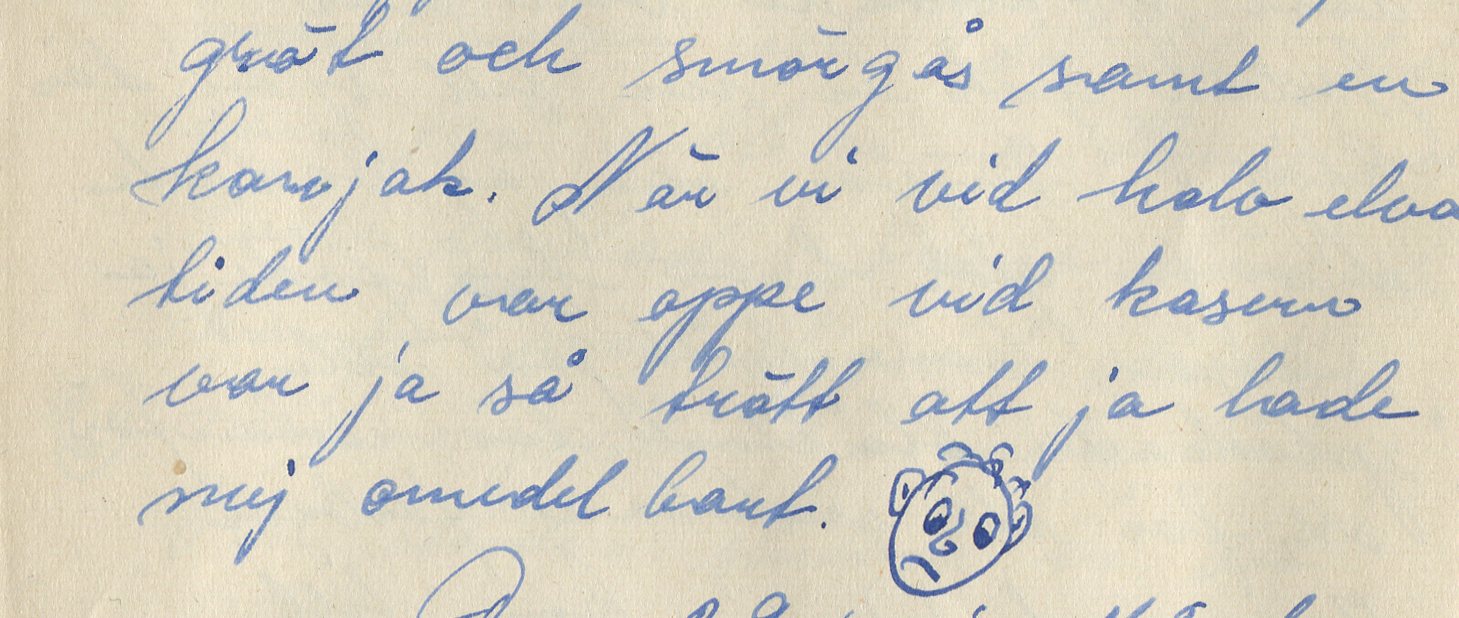 gröt och smörgås samt en
konjak. När vi vid halv elva
tiden var oppe vid kasern
var ja så trött att ja lade
mej omedelbart.